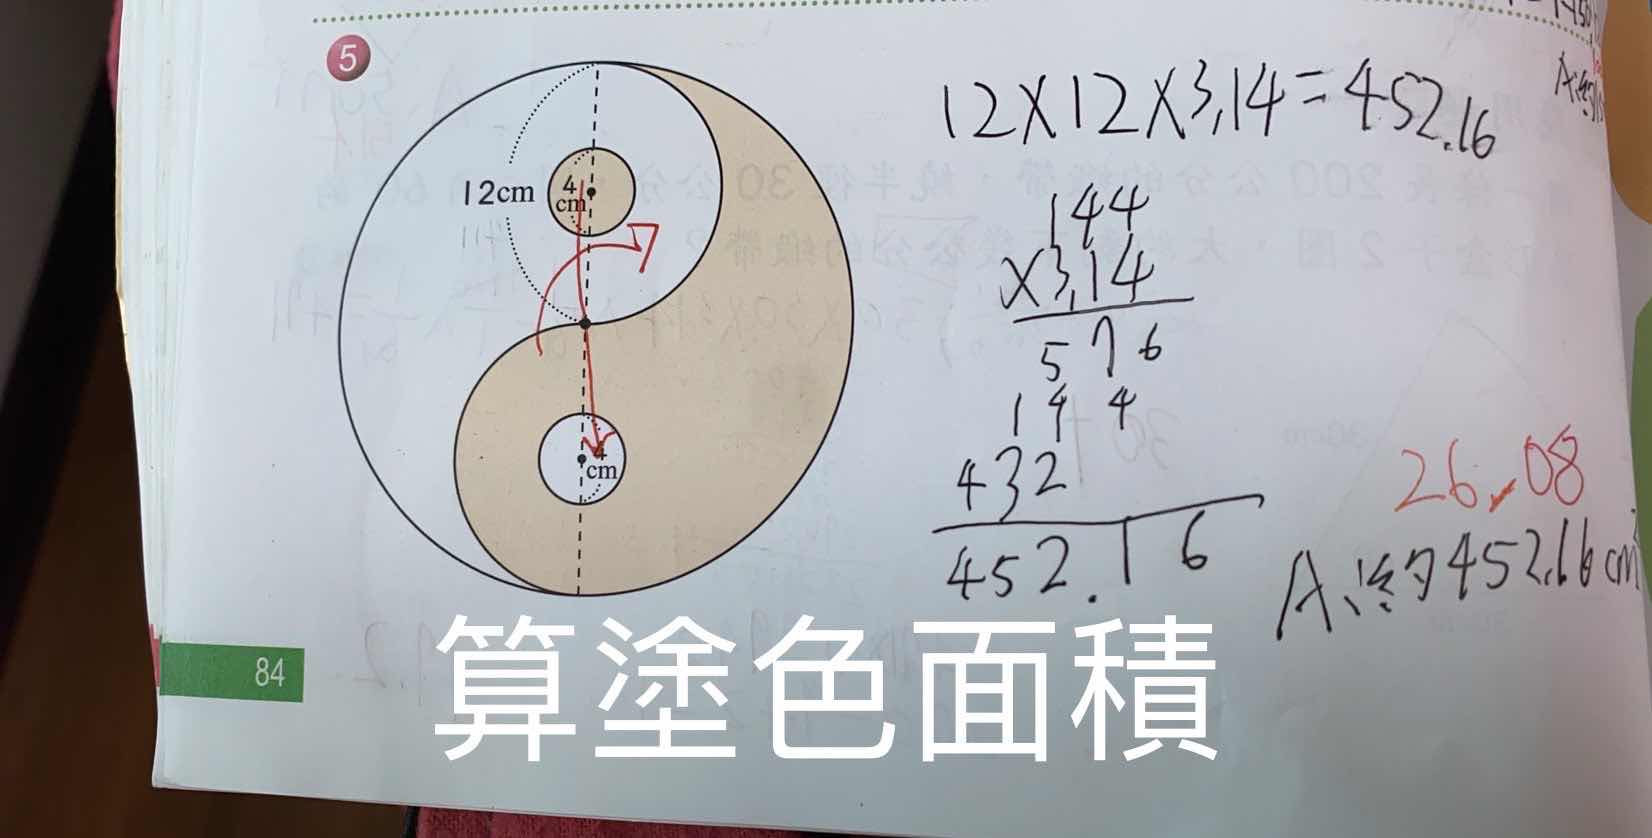 5
12cm
4
cm
4
cm
12×12×3.14=452.16
144
×3.14
576
144
432
452.16
26.08
A:約452.16cm
算塗色面積
84